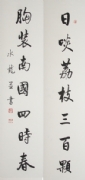 日啖荔枝三百顆
胸裝南國四時春